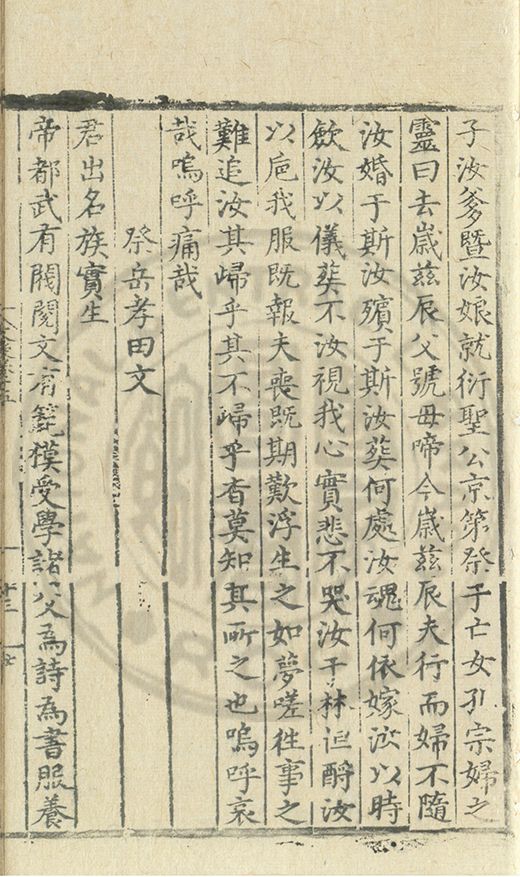 子汝爹暨汝娘就衍聖公京第祭于亡女孔宗婦之
靈曰去歲茲辰父號母啼今歲茲辰夫行而婦不隨
汝婚于斯汝殯于斯汝葬何處汝魂何依嫁汝以時
飲汝以儀葬不汝視我心實悲不哭汝于林但酹汝
以巵我服既報夫喪既期歎浮生之如夢嗟徃事之
難追汝其歸乎其不歸乎杳莫知其所之也嗚呼哀
哉嗚呼痛哉
祭岳孝田文
君出名族實生
帝都武有閥閱文有範模受學諸父為詩為書服養